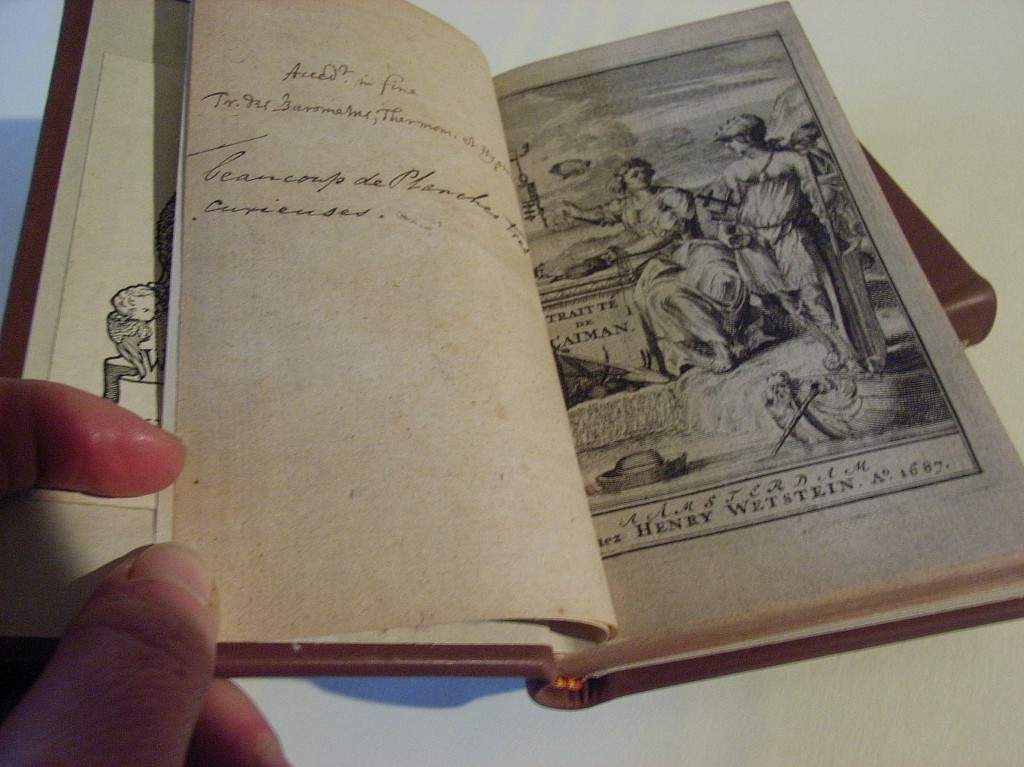 Acced.t in fine
Tr. des Barometres, Thermom. et Hygr
beaucoup de Planches tres
curieuses.
TRAITTÉ
DE
L'AIMAN.
A AMSTERDAM
hez HENRY WETSTEIN. Ao. 1687.